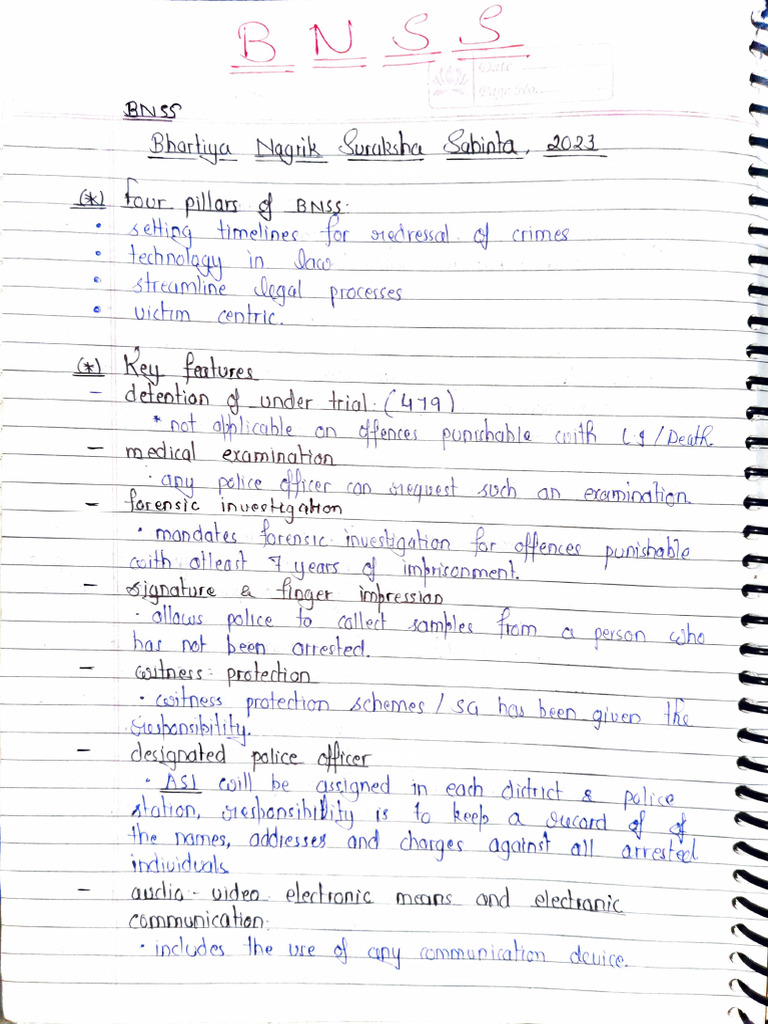 B N S S
Date
Page No.
BNSS
Bhartiya Nagrik Suraksha Sahinta, 2023
(*) four pillars of BNSS.
• setting timelines for redressal of crimes
• technology in law
• streamline legal processes
• victim centric.
(*) Key features
- detention of under trial. (479)
* not applicable on offences punishable with LI/Death
- medical examination
• any police officer can request such an examination.
- forensic investigation
• mandates forensic investigation for offences punishable
with atleast 7 years of imprisonment.
- signature & finger impression
• allows police to collect samples from a person who
has not been arrested.
- witness protection
• witness protection schemes / SG has been given the
responsibility.
- designated police officer
• ASI will be assigned in each district & police
station, responsibility is to keep a record of of
the names, addresses and charges against all arrested
individuals
- audio-video electronic means and electronic
communication:
• includes the use of any communication device.